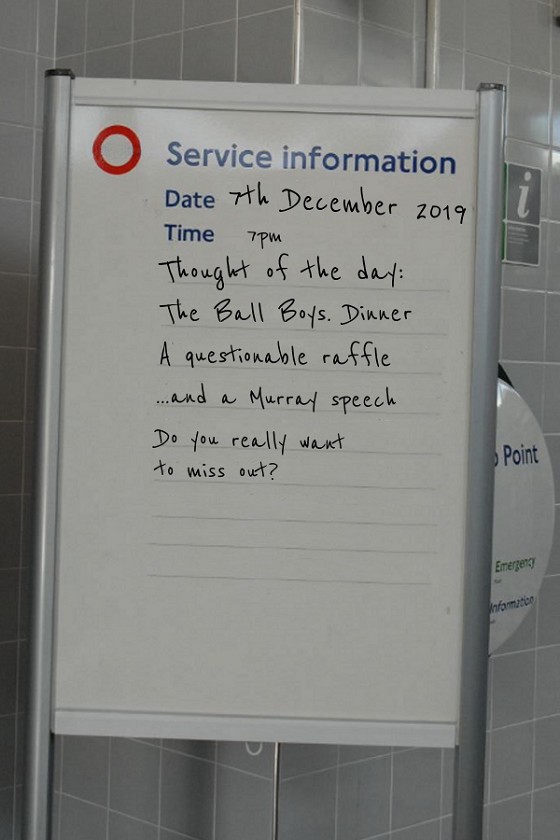 Service information
Date 7th December 2019
Time 7pm
Thought of the day:
The Ball Boys. Dinner
A questionable raffle
...and a Murray speech
Do you really want
to miss out?
i
Point
Emergency
Information